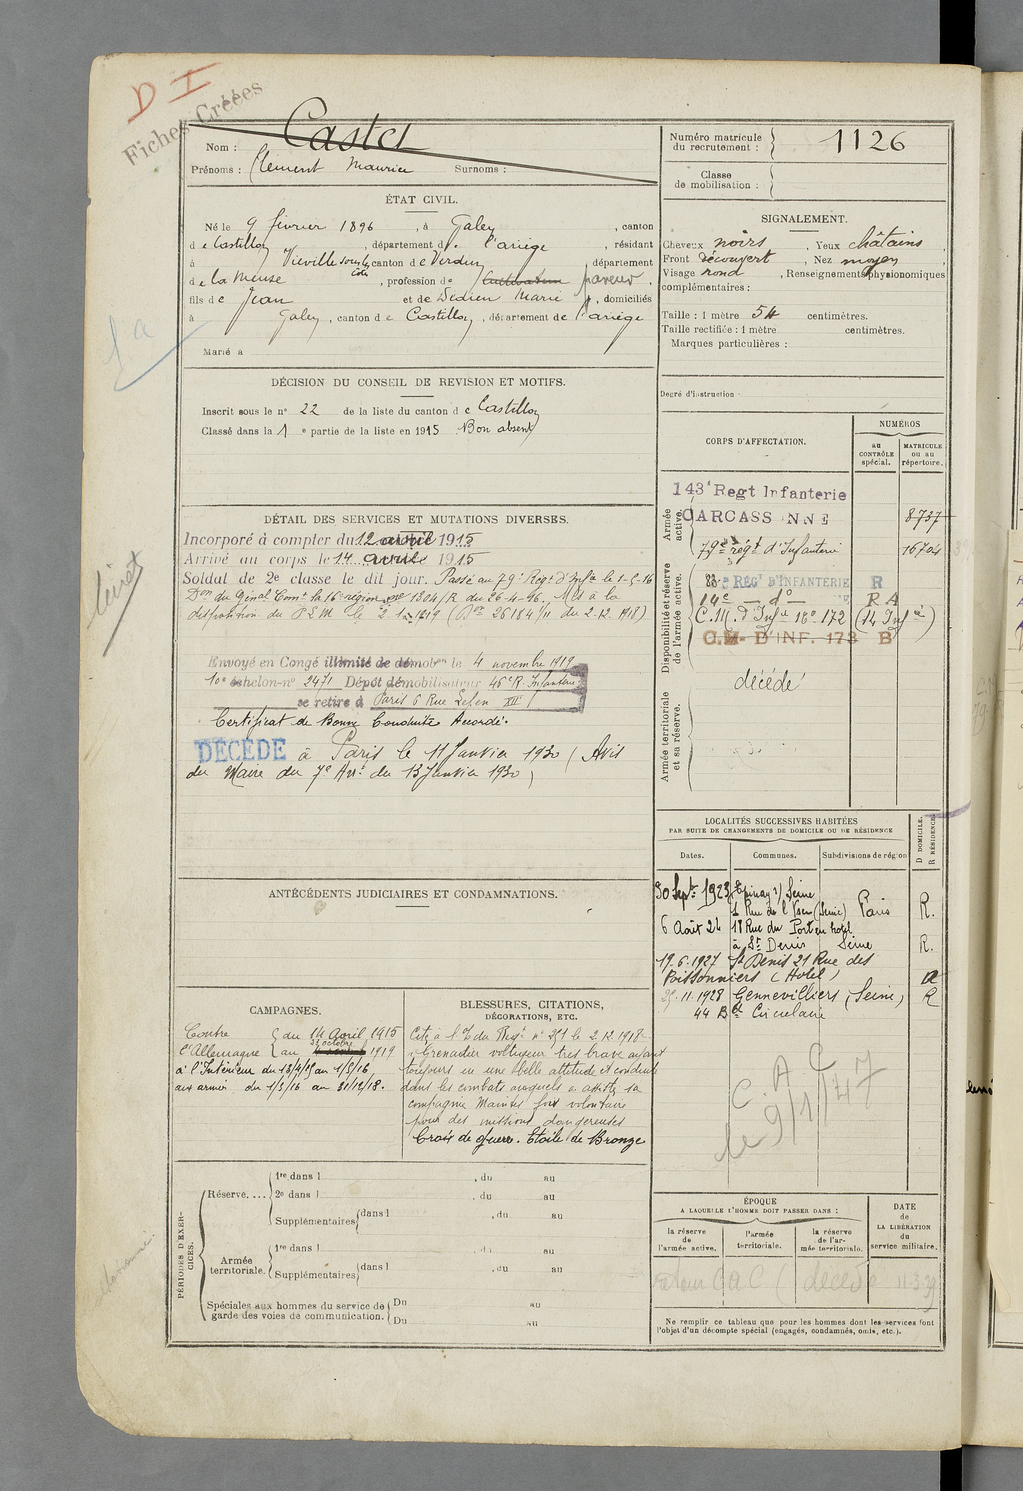 D I
Fiches Créées
Nom : Castet
Prénoms : Clément Maurice Surnoms :
Numéro matricule du recrutement : 1126
Classe de mobilisation :
ÉTAT CIVIL.
Né le 9 février 1896, à Galey, canton
de Castillon, département de l'ariège, résidant
à Vieville sous les Côtes, canton de Verdun, département
de La Meuse, profession de Cultivateur paveur,
fils de Jean et de Dédieu Marie, domiciliés
à Galey, canton de Castillon, département de l'ariège
Marié à
SIGNALEMENT.
Cheveux noirs, Yeux châtains,
Front découvert, Nez moyen,
Visage rond, Renseignements physionomiques
complémentaires :
Taille : 1 mètre 54 centimètres.
Taille rectifiée : 1 mètre centimètres.
Marques particulières :
Degré d'instruction
DÉCISION DU CONSEIL DE REVISION ET MOTIFS.
Inscrit sous le n° 22 de la liste du canton de Castillon
Classé dans la 1e partie de la liste en 1915 Bon absent
DÉTAIL DES SERVICES ET MUTATIONS DIVERSES.
Incorporé à compter du 12 avril 1915
Arrivé au corps le 14 avril 1915
Soldat de 2e classe le dit jour. Passé au 79e Régt d'Infie le 1-5-16
Don du Génal Comt la 16e région n° 1304/R du 26-4-96, Mis à la
disposition du P.L.M. le 2 1 1919 (Don 26184 1/11 du 2.12.1918)
Envoyé en Congé illimité de démobon le 4 novembre 1919
10e échelon-n° 2471 Dépôt démobilisateur 46e R. Infanterie
se retire à Paris 6 Rue XIII
Certificat de Bonne Conduite Accordé.
DÉCÉDÉ à Paris le 11 Janvier 1930 (Avis
du Maire du 7e Arrt du 13 Janvier 1930)
CORPS D'AFFECTATION.
NUMÉROS
au CONTRÔLE spécial.
MATRICULE ou au répertoire.
Armée active.
143e Regt Infanterie
CARCASSONNE 8737
79e régt d'Infanterie 16704
Disponibilité et réserve de l'armée active.
23e RÉGt D'INFANTERIE R
14e — do — RA
C.M. d'Infie n° 172 (14 Infie)
C.M. D'INF. 173 B
Armée territoriale et sa réserve.
décédé
LOCALITÉS SUCCESSIVES HABITÉES
PAR SUITE DE CHANGEMENTS DE DOMICILE OU DE RÉSIDENCE
Dates. Communes. Subdivisions de région
D DOMICILE. R RÉSIDENCE.
30 Septe 1923 Epinay s/ Seine
1 Rue de l' (Seine) Paris R.
6 Août 24 18 Rue du Port en hotel
à St Denis Seine R.
19.6.1927 St Denis 21 Rue des
Poissonniers (Hotel) R
25.11.1928 Gennevilliers (Seine) R
44 Bd Circulaire
C A C
le 9/1/47
ANTÉCÉDENTS JUDICIAIRES ET CONDAMNATIONS.
CAMPAGNES.
Contre l'Allemagne { du 14 Avril 1915
au 31 octobre 1919
à l'Intérieur du 13/4/15 au 1/5/16
aux armées du 1/5/16 au 31/12/18.
BLESSURES, CITATIONS,
DÉCORATIONS, ETC.
Cité à l'O du Régt n° 251 le 2.12.1918
"Grenadier voltigeur très brave ayant
toujours eu une belle attitude et conduite
dans les combats auxquels a assisté sa
compagnie Maintes fois volontaire
pour des missions dangereuses
Croix de guerre. Etoile de Bronze
PÉRIODES D'EXERCICES.
Réserve....
1re dans l , du au
2e dans l , du au
Supplémentaires dans l , du au
Armée territoriale.
1re dans l , du au
Supplémentaires dans l , du au
Spéciales aux hommes du service de garde des voies de communication.
Du au
Du au
ÉPOQUE
A LAQUELLE L'HOMME DOIT PASSER DANS :
la réserve de l'armée active.
l'armée territoriale.
la réserve de l'armée territoriale.
DATE de LA LIBÉRATION du service militaire.
CAC (décédé
Ne remplir ce tableau que pour les hommes dont les services font
l'objet d'un décompte spécial (engagés, condamnés, omis, etc.).